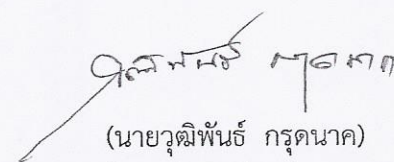 วุฒิพันธ์ กรุดนาค
(นายวุฒิพันธ์ กรุดนาค)